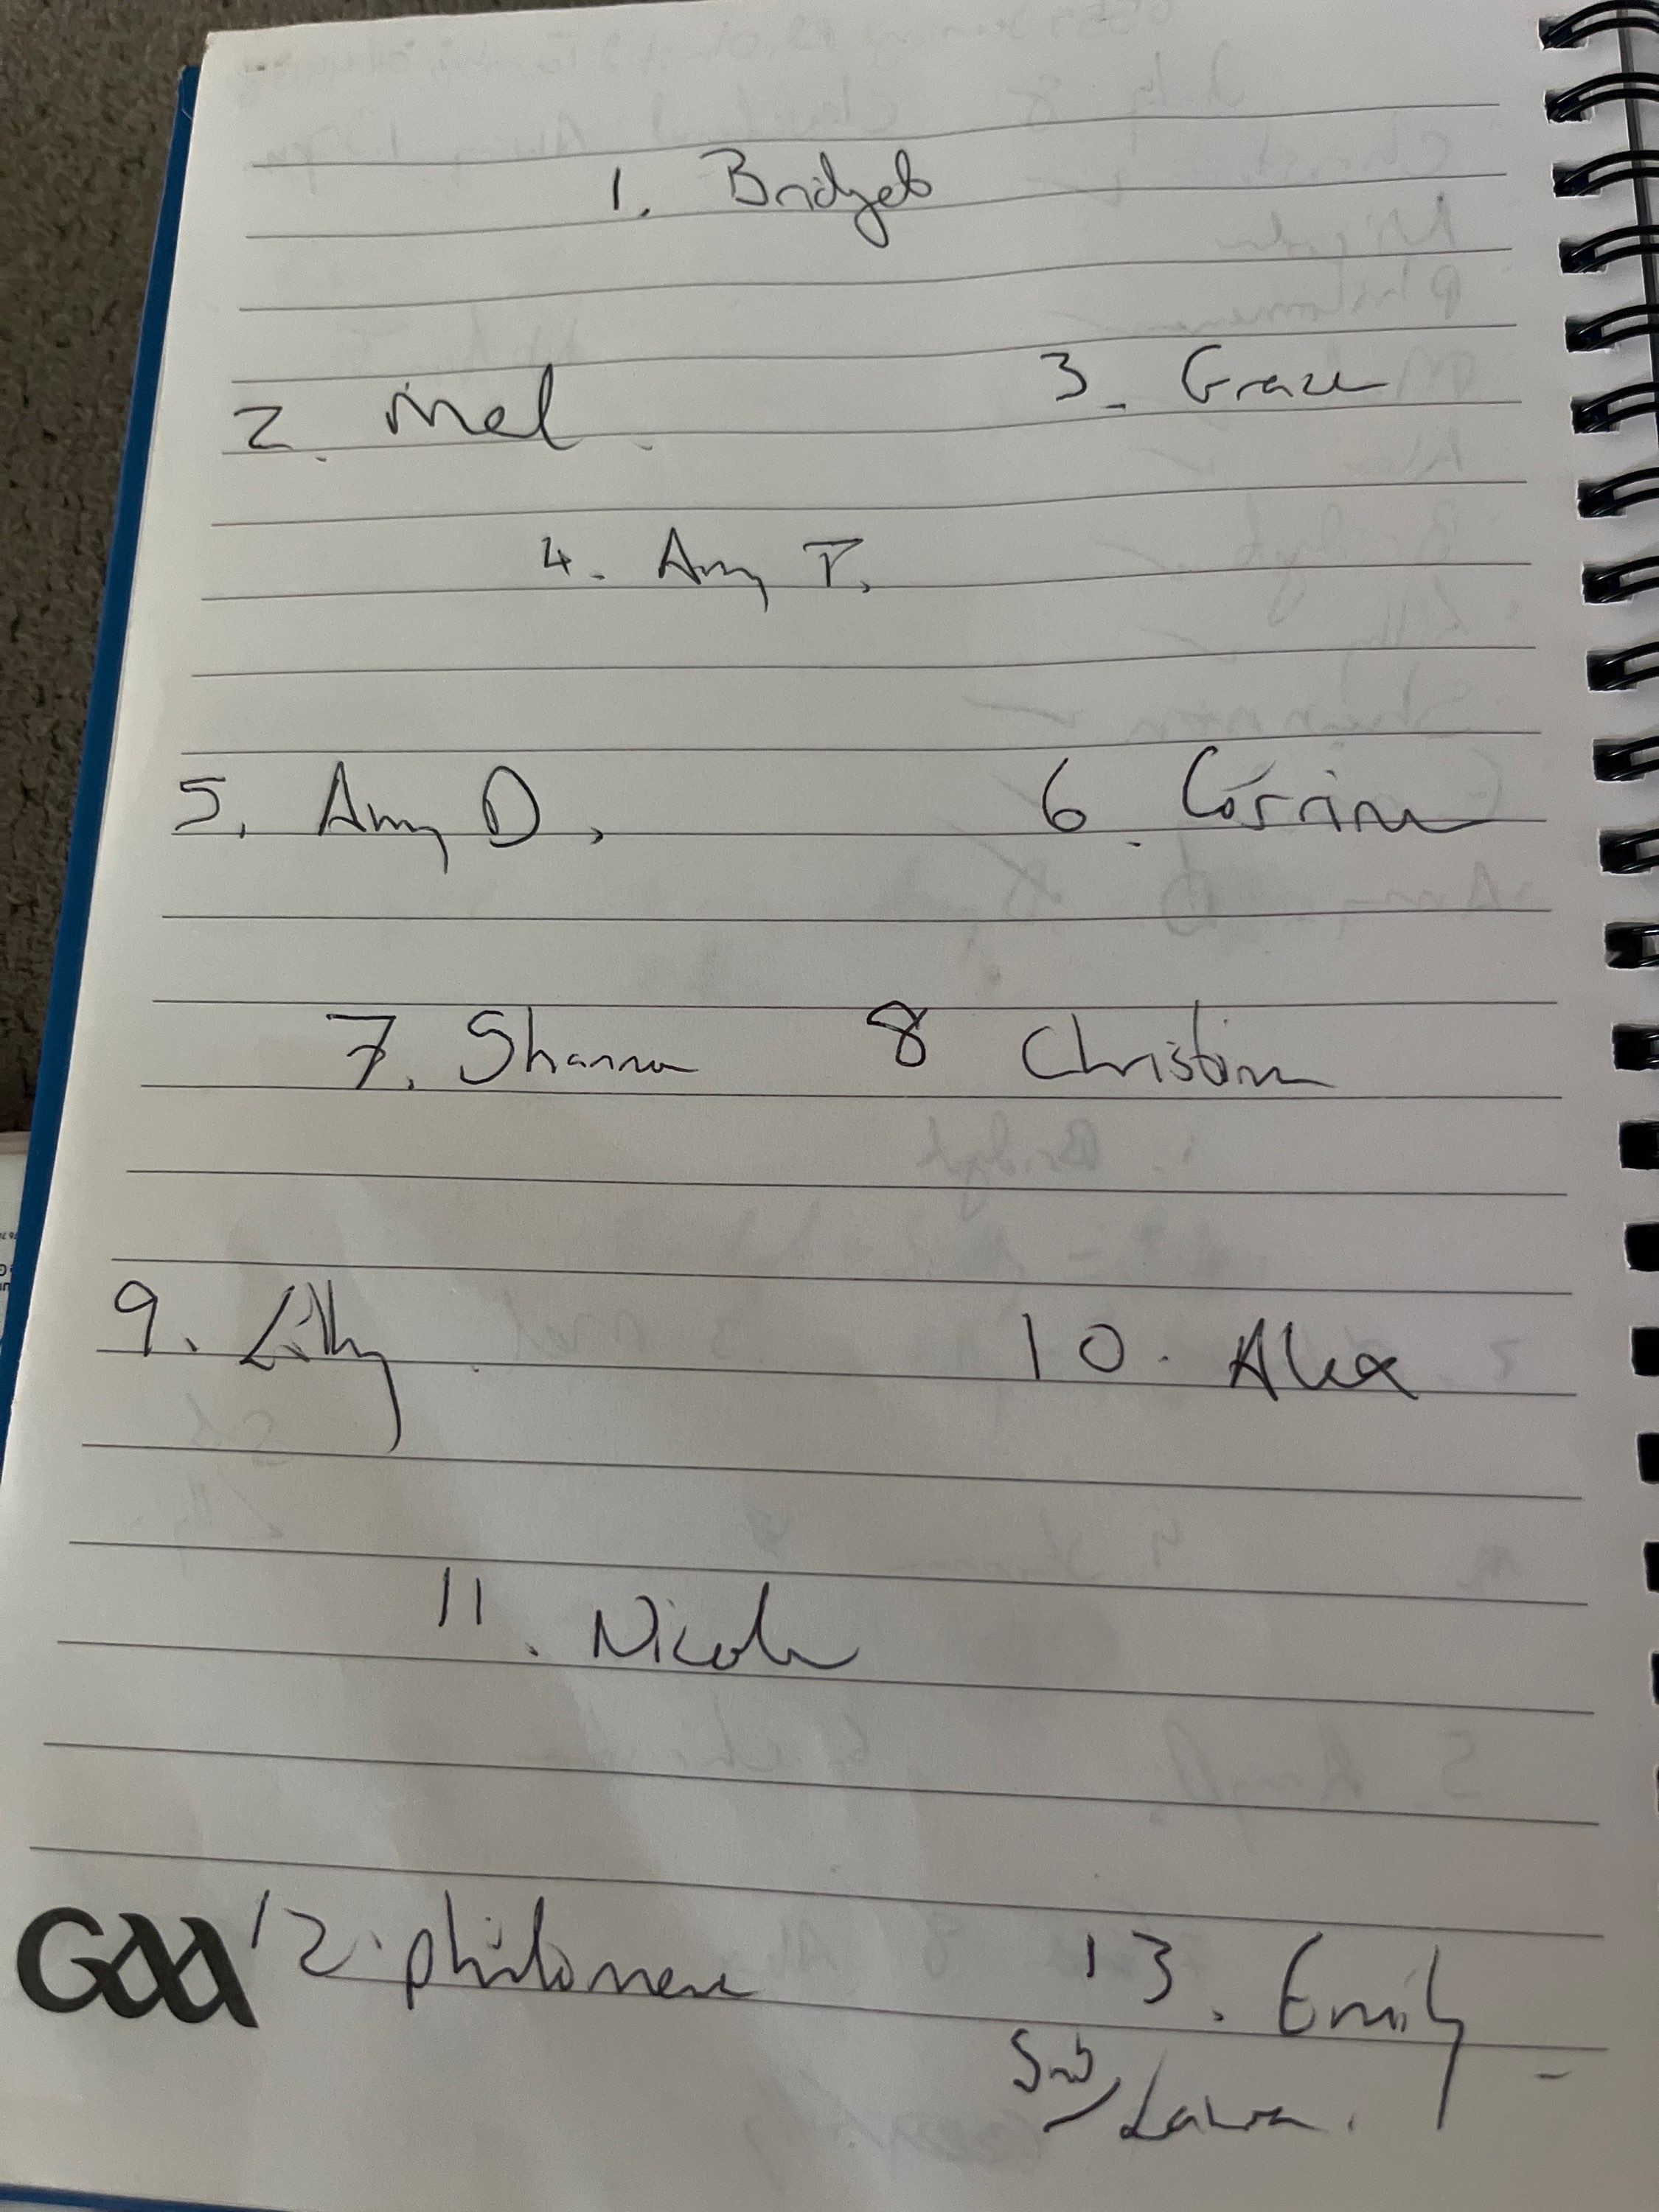 1. Bridget
2. Mel. 3. Grace
4. Amy T.
5. Amy D. 6. Corrine
7. Shannon 8 Christine
9. Lilly. 10. Alex
11. Nicole
GAA 12. philomena 13. Emily
Sub/Laura.